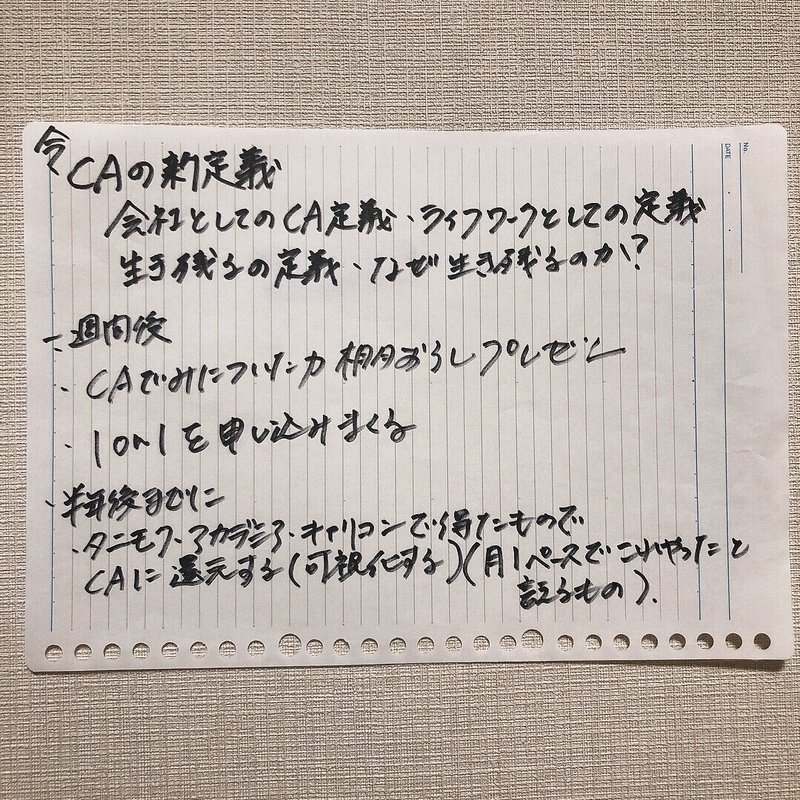 今
CAの新定義
会社としてのCA定義、ライフワークとしての定義
生き残るの定義、なぜ生き残るのか?
一週間後
・CAでみについた力 棚おろしプレゼン
・1on1を申し込みまくる
・半年後までに
・タニモク・アカデミア・キャリコンで得たもので
CAに還元する(可視化する)(月1ペースでこれやったと
言えるもの).
No.
DATE